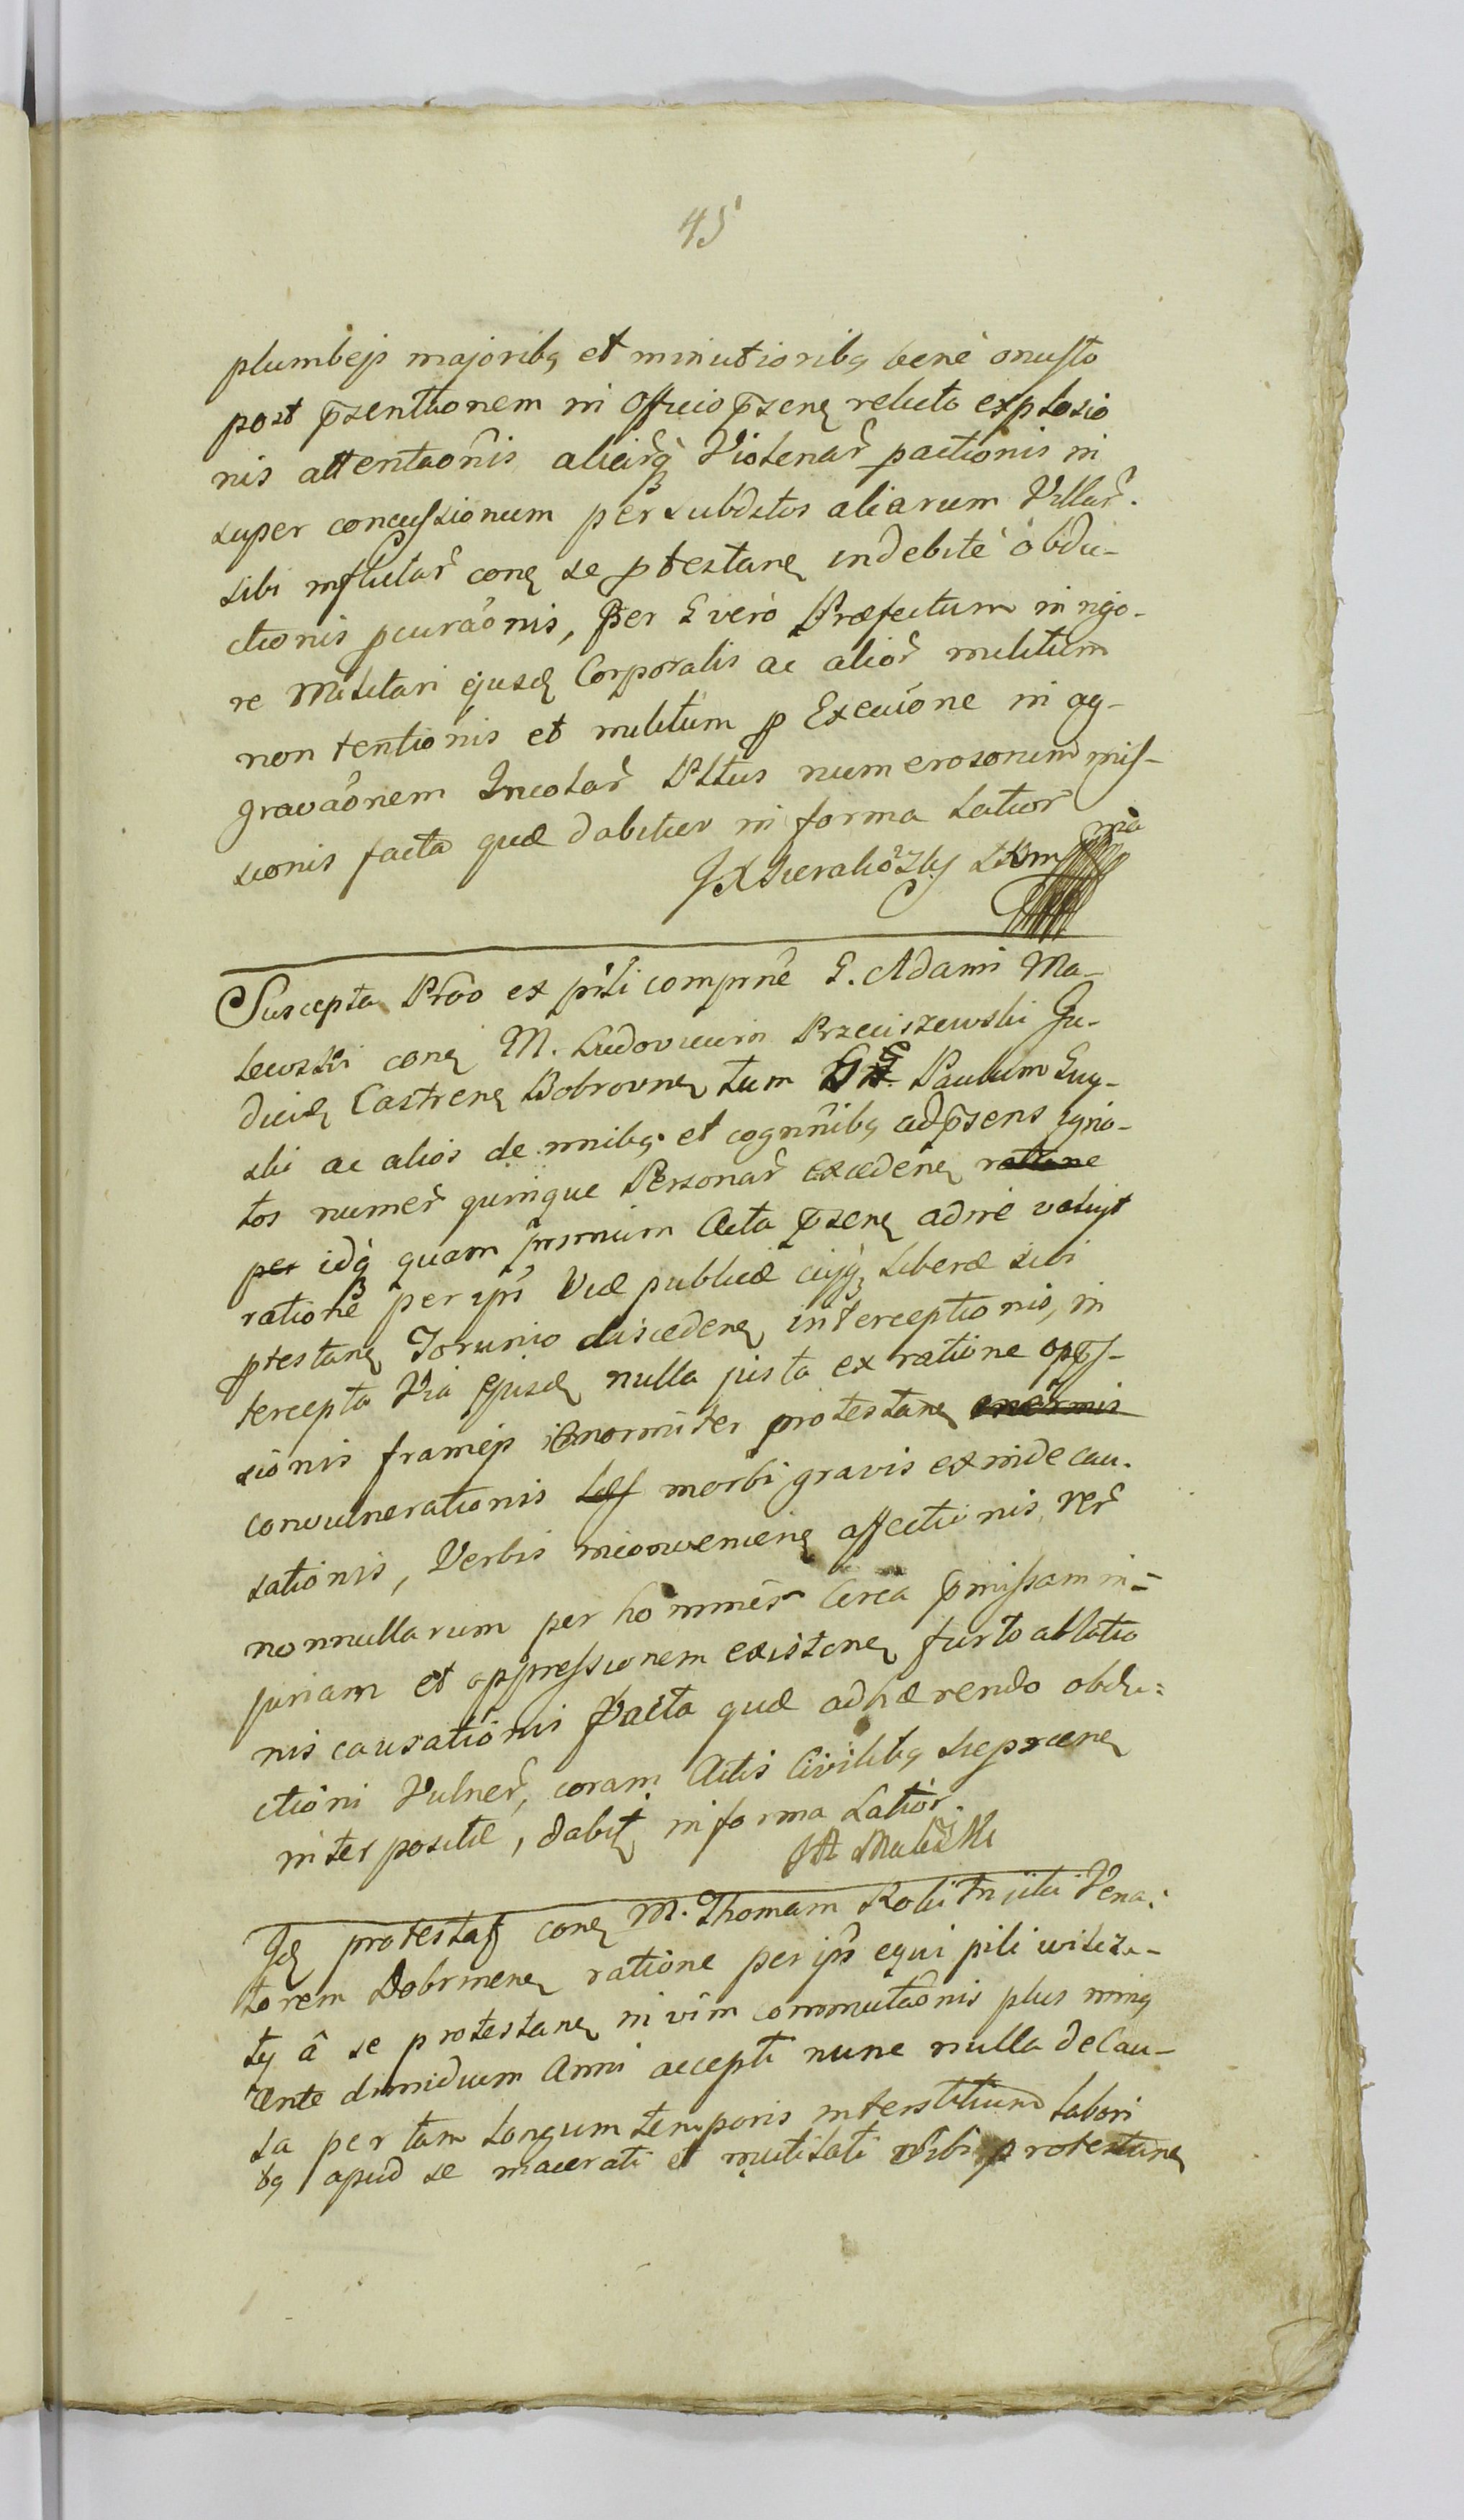 45
plumbejs majoribꝫ et minutioribꝫ bene onusto
post p̄sentaōnem in Officio p̄senꝫ relicta explosio
nis attentaōnis aliarq̃ Violenar̃ pactionis in
super concussionum per subditos aliarum Villar̃.
sibi conꝫ se ptestanꝫ indebitè obdu-
ctionis pcuraōnis, per G verò Præfectum in rigo-
re Militari ejusdꝫ Corporalis ac alior̃ militum
non tentionis et militum p Execuione in ag-
gravaōnem Incolar̃ numerosorum mis-
sionis facta quæ dabitur in forma latior̃
mp
Suscepta Prõo ex comprñe G. Adami Ma-
lewski conꝫ M. Ludovicum Przeciszewski Ju-
dicꝫ Castrenꝫ Bobrovnꝫ tum G Paulum
ski ac alios de nnibꝫ et cognñibꝫ ad p̄sens igno-
tos numer̃ quinque Personar̃ excedenꝫ ratione
per idq̃ quam primum Acta p̄senꝫ adire valuit
ratione per ips̃ Viæ publicæ cujqꝫ liberæ sibi
ptestanꝫ Torunio discedenꝫ interceptionis, in
tercepta Via ejusdꝫ nulla justa ex ratione opp̄s-
sionis framejs enormiter protestanꝫ enormis
convulnerationis morbi gravis exinde cau-
sationis, Verbis inconvenienꝫ affectionis, rer̃
nonnullarum per homines Circa p̄missam in-
juriam et oppressionem existenꝫ furto ablatio
nis causationis facta quæ adhærendo obdu-
ctioni Vulner̃, coram Actis Civilibꝫ Lipnenꝫ
interpositæ, dabiṫ in forma Latior̃.
JA Malewski
Jdꝫ protestaṫ conꝫ M. Thomam Vena-
torem Dobrinenꝫ ratione per ips̃ equi pili wilcza-
ty â se protestanꝫ in vim commutaōnis plus minꝫ
Ante dimidium Anni accepti nunc nulla de Cau-
sa per tam longum temporis interstitium labori
bꝫ apud se macerati et mutilati sibi protestanꝫ